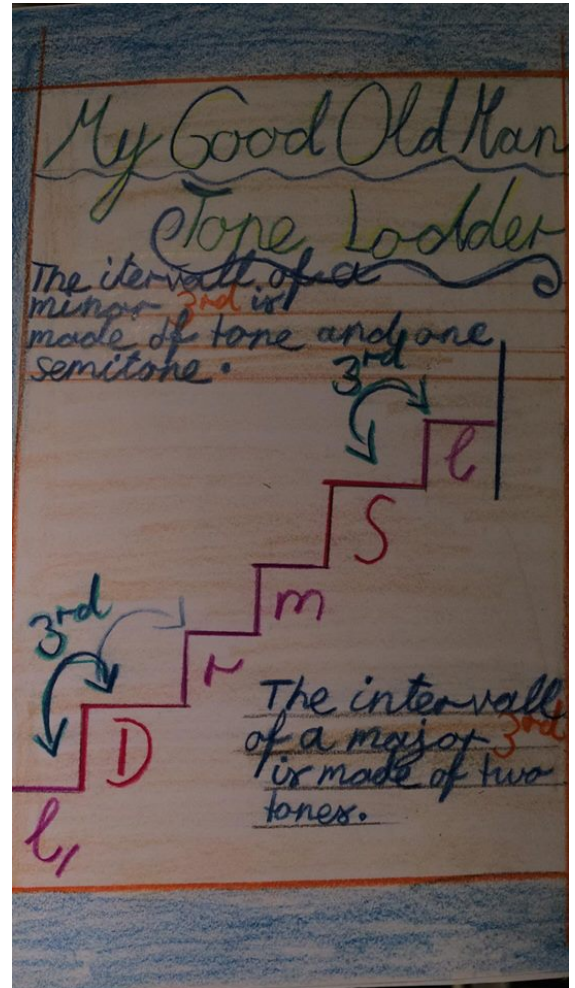 My Good Old Man
Tone Ladder
The itervall of a
minor 3rd is
made of tone and one
semitone.
3rd
l
S
m
3rd
r
D
l,
The intervall
of a major 3rd
is made of two
tones.